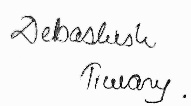 Debashish
Tiwary.